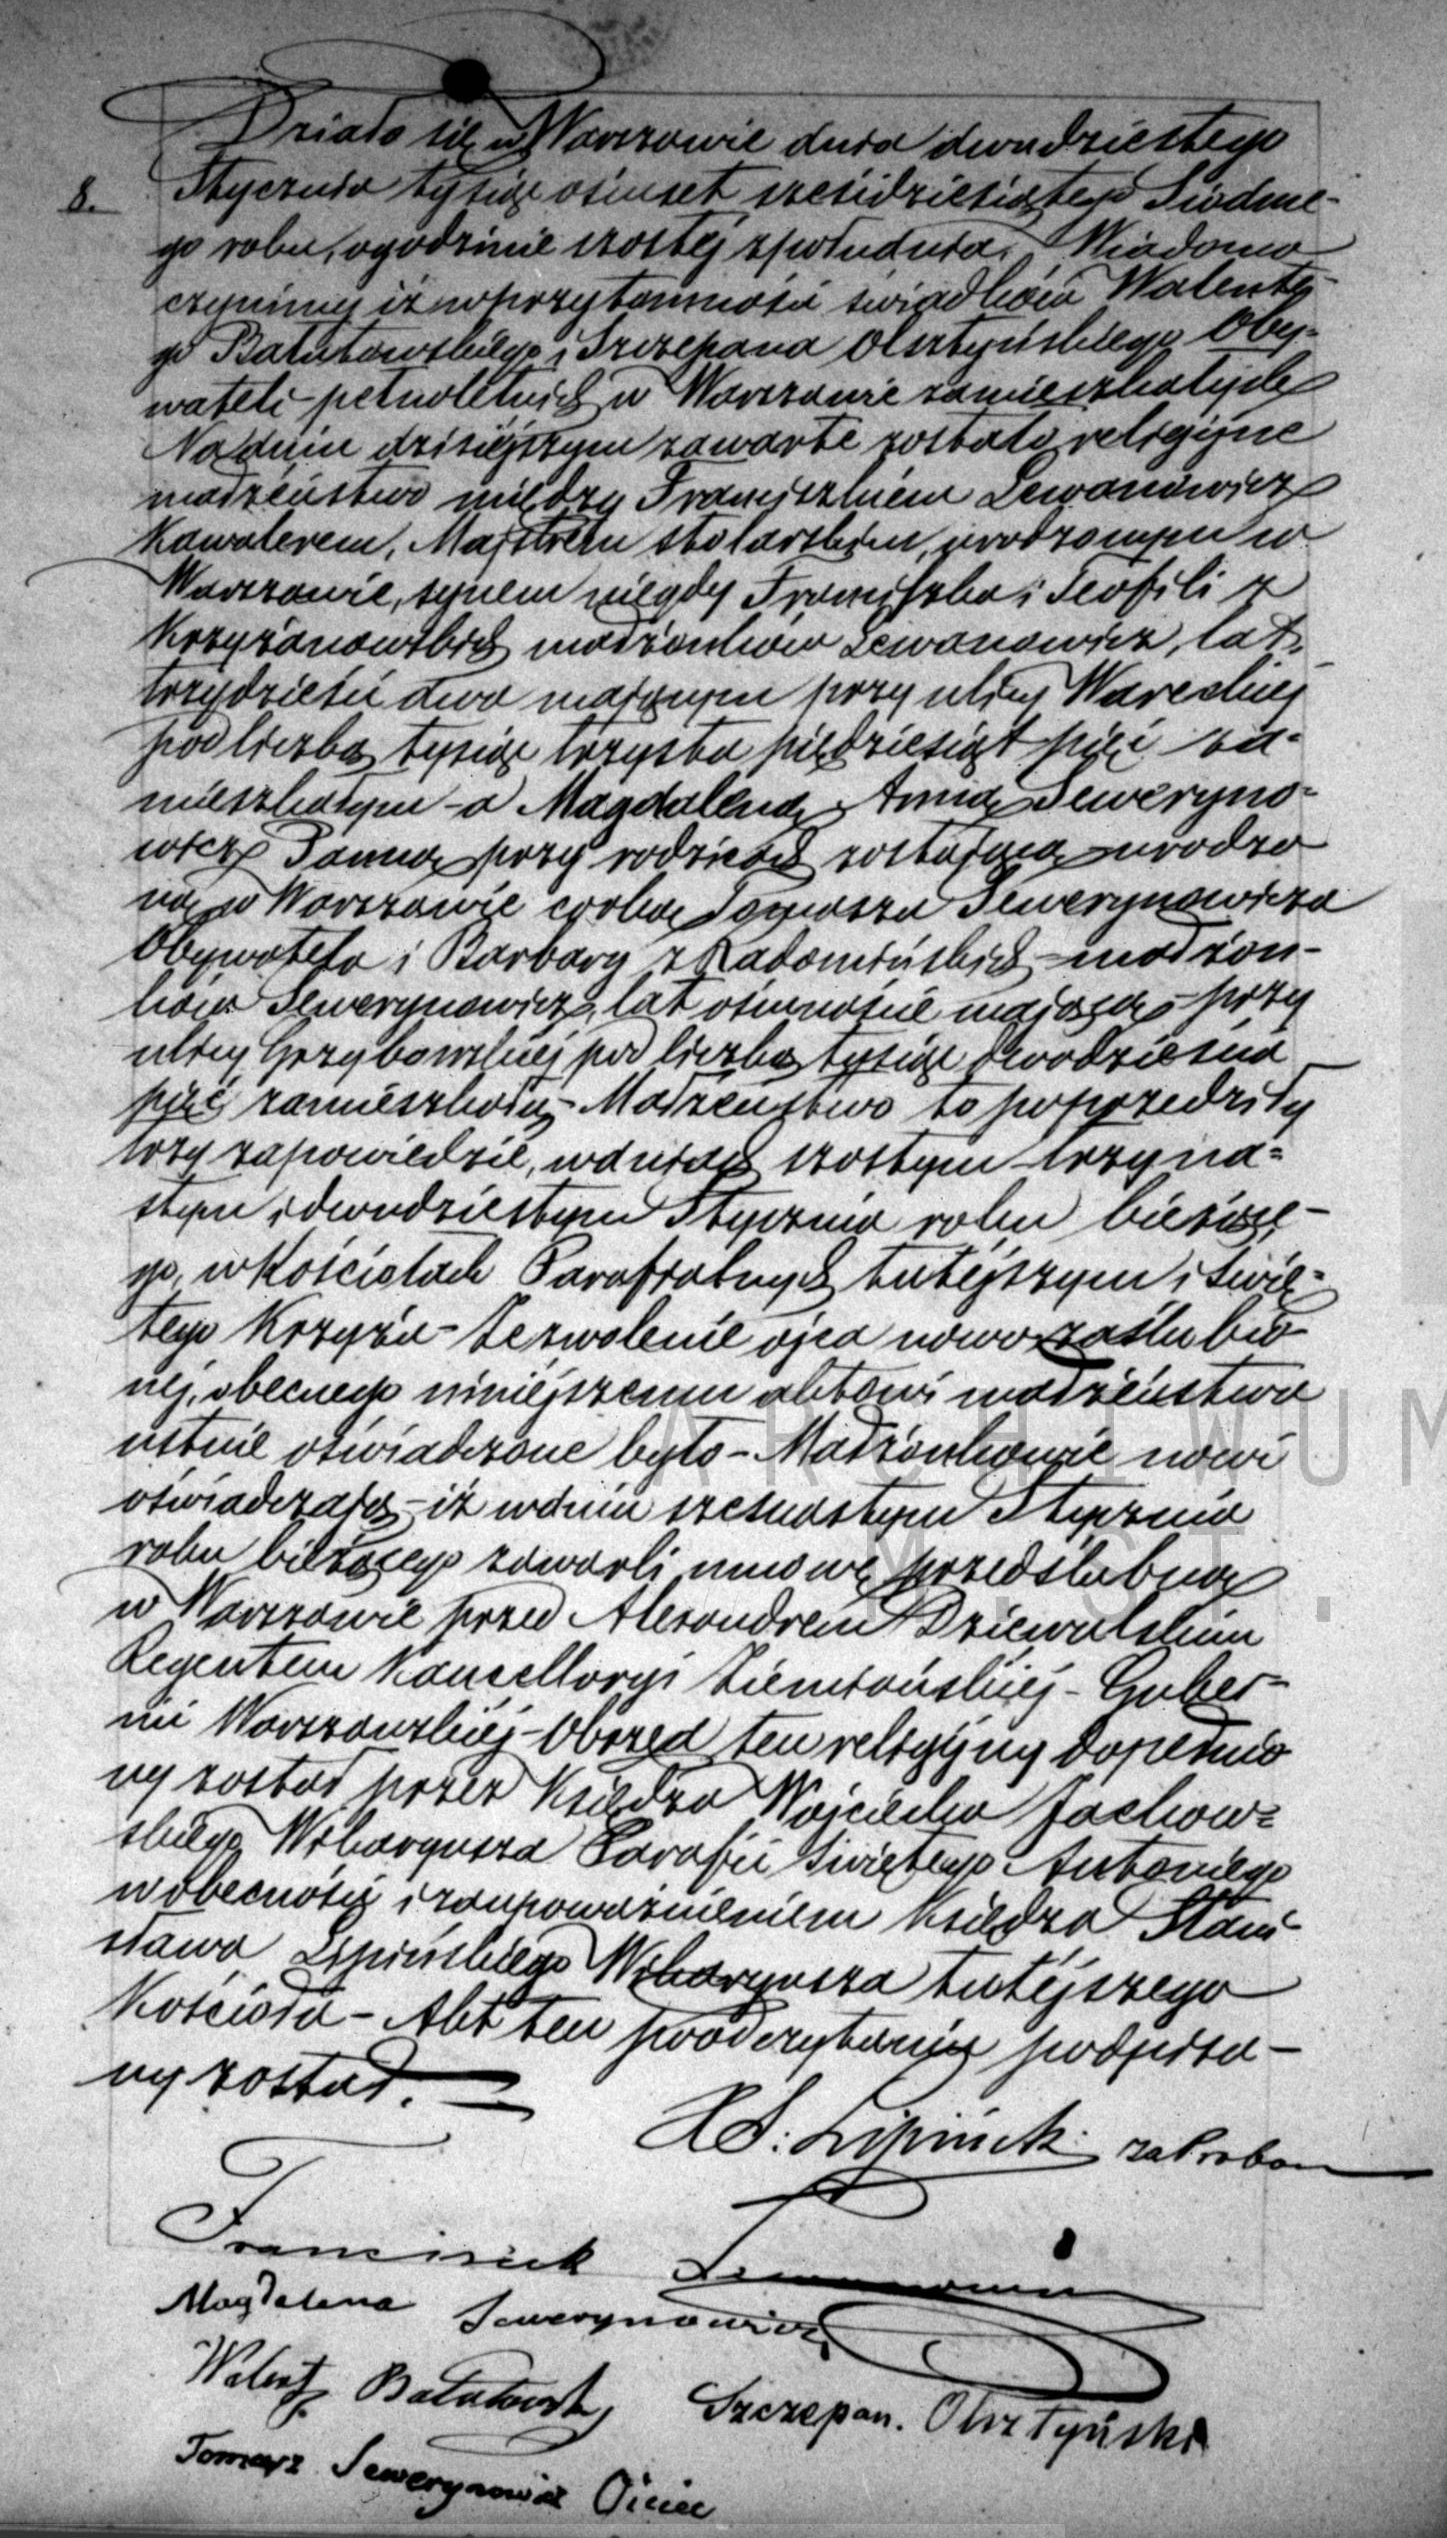 Działo się w Warszawie dnia dwudziestego
8. Stycznia tysiąc osimset sześćdziesiątego Siódme-
go roku, o godzinie szóstej z południa. Wiadomo
czynimy iż w przytomności świadków Walente-
go Bałutowskiego i Szczepana Olsztyńskiego Oby-
wateli pełnoletnich w Warszawie zamieszkałych
Na dniu dzisiejszym zawarte zostało religijne
małżeństwo między Franciszkiem Lewanowicz
Kawalerem, Majstrem stolarskim, urodzonym w
Warszawie, synem niegdy Franciszka i Teofili z
Krzyżanowskich małżonków Lewanowicz, lat
trzydzieści dwa mającym przy ulicy Wareckiej
pod liczbą tysiąc trzysta piędziesiąt pięć za-
mieszkałym - a Magdaleną Anną Seweryno-
wicz Panną przy rodzicach zostającą urodzo
ną w Warszawie córką Tomasza Sewerynowicza
Obywatela i Barbary z Radomińskich małżon-
ków Sewerynowicz, lat ośmnaście mającą - przy
ulicy Grzybowskiej pod liczbą tysiąc dwadzieścia
pięć zamieszkałą - Małżeństwo to poprzedziły
trzy zapowiedzie, w dniach szóstym trzyna-
stym i dwudziestym Stycznia roku bieżące-
go, w Kościołach Parafialnych tutejszym i Świę-
tego Krzyża - Zezwolenie ojca nowo zaślubio
nej, obecnego niniejszemu aktowi małżeństwa
ustnie oświadczone było - Małżonkowie nowi
oświadczają - iż w dniu szesnastym Stycznia
roku bieżącego zawarli umowę przedślubną
w Warszawie przed Alexandrem Dziewulskim
Regentem Kancellaryi Ziemiańskiej - Guber-
nii Warszawskiej - Obrzęd ten religijny dopełnio
ny został przez Księdza Wojciecha Jachow-
skiego Wikaryusza Parafii Świętego Antoniego
w obecności i z upoważnieniem Księdza Stani-
sława Lipińskiego Wikaryusza tutejszego
Kościoła - Akt ten po odczytaniu podpisa-
ny został.
X S. Lipiński za Probo
Franciszek Lewanowicz
Magdalena Sewerynowicz
Walenty Bałutowski Szczepan. Olsztyński
Tomasz Sewerynowicz Oiciec
ARCHIWUM
M.ST.